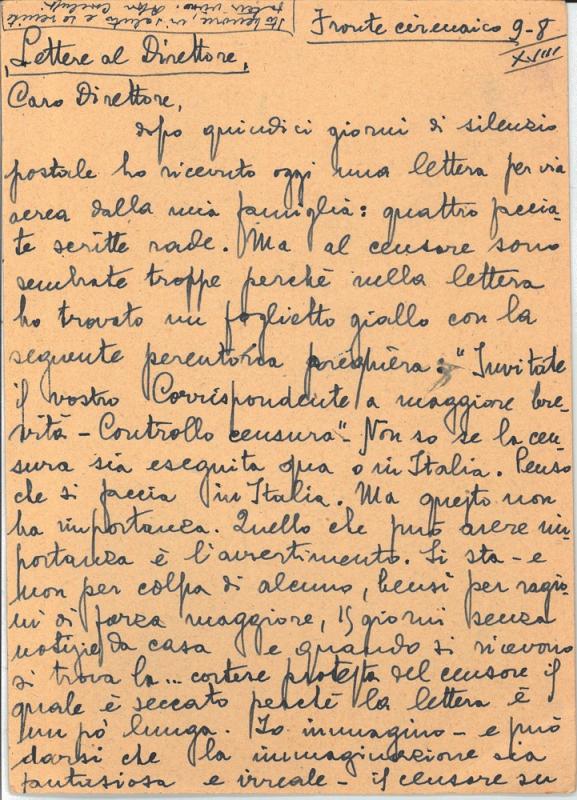 Sto benone, vi saluto e
Fronte cirenaico 9-8
XVIII
Lettere al Direttore,
Caro Direttore,
dopo quindici giorni di silenzio
postale ho ricevuto oggi una lettera per via
aerea dalla mia famiglia: quattro faccia-
te scritte rade. Ma al censore sono
sembrate troppe perché nella lettera
ho trovato un foglietto giallo con la
seguente perentoria preghiera: "Invitate
il vostro Corrispondente a maggiore bre-
vità - Controllo censura". Non so se la cen-
sura sia eseguita qua o in Italia. Penso
che si faccia in Italia. Ma questo non
ha importanza. Quello che può avere im-
portanza è l'avvertimento. Si sta - e
non per colpa di alcuno, bensì per ragio-
ni di forza maggiore, 15 giorni senza
notizie da casa e quando si ricevono
si trova la... cortese protesta del censore il
quale è seccato perché la lettera è
un po' lunga. Io immagino - e può
darsi che la immaginazione sia
fantasiosa e irreale - il censore su